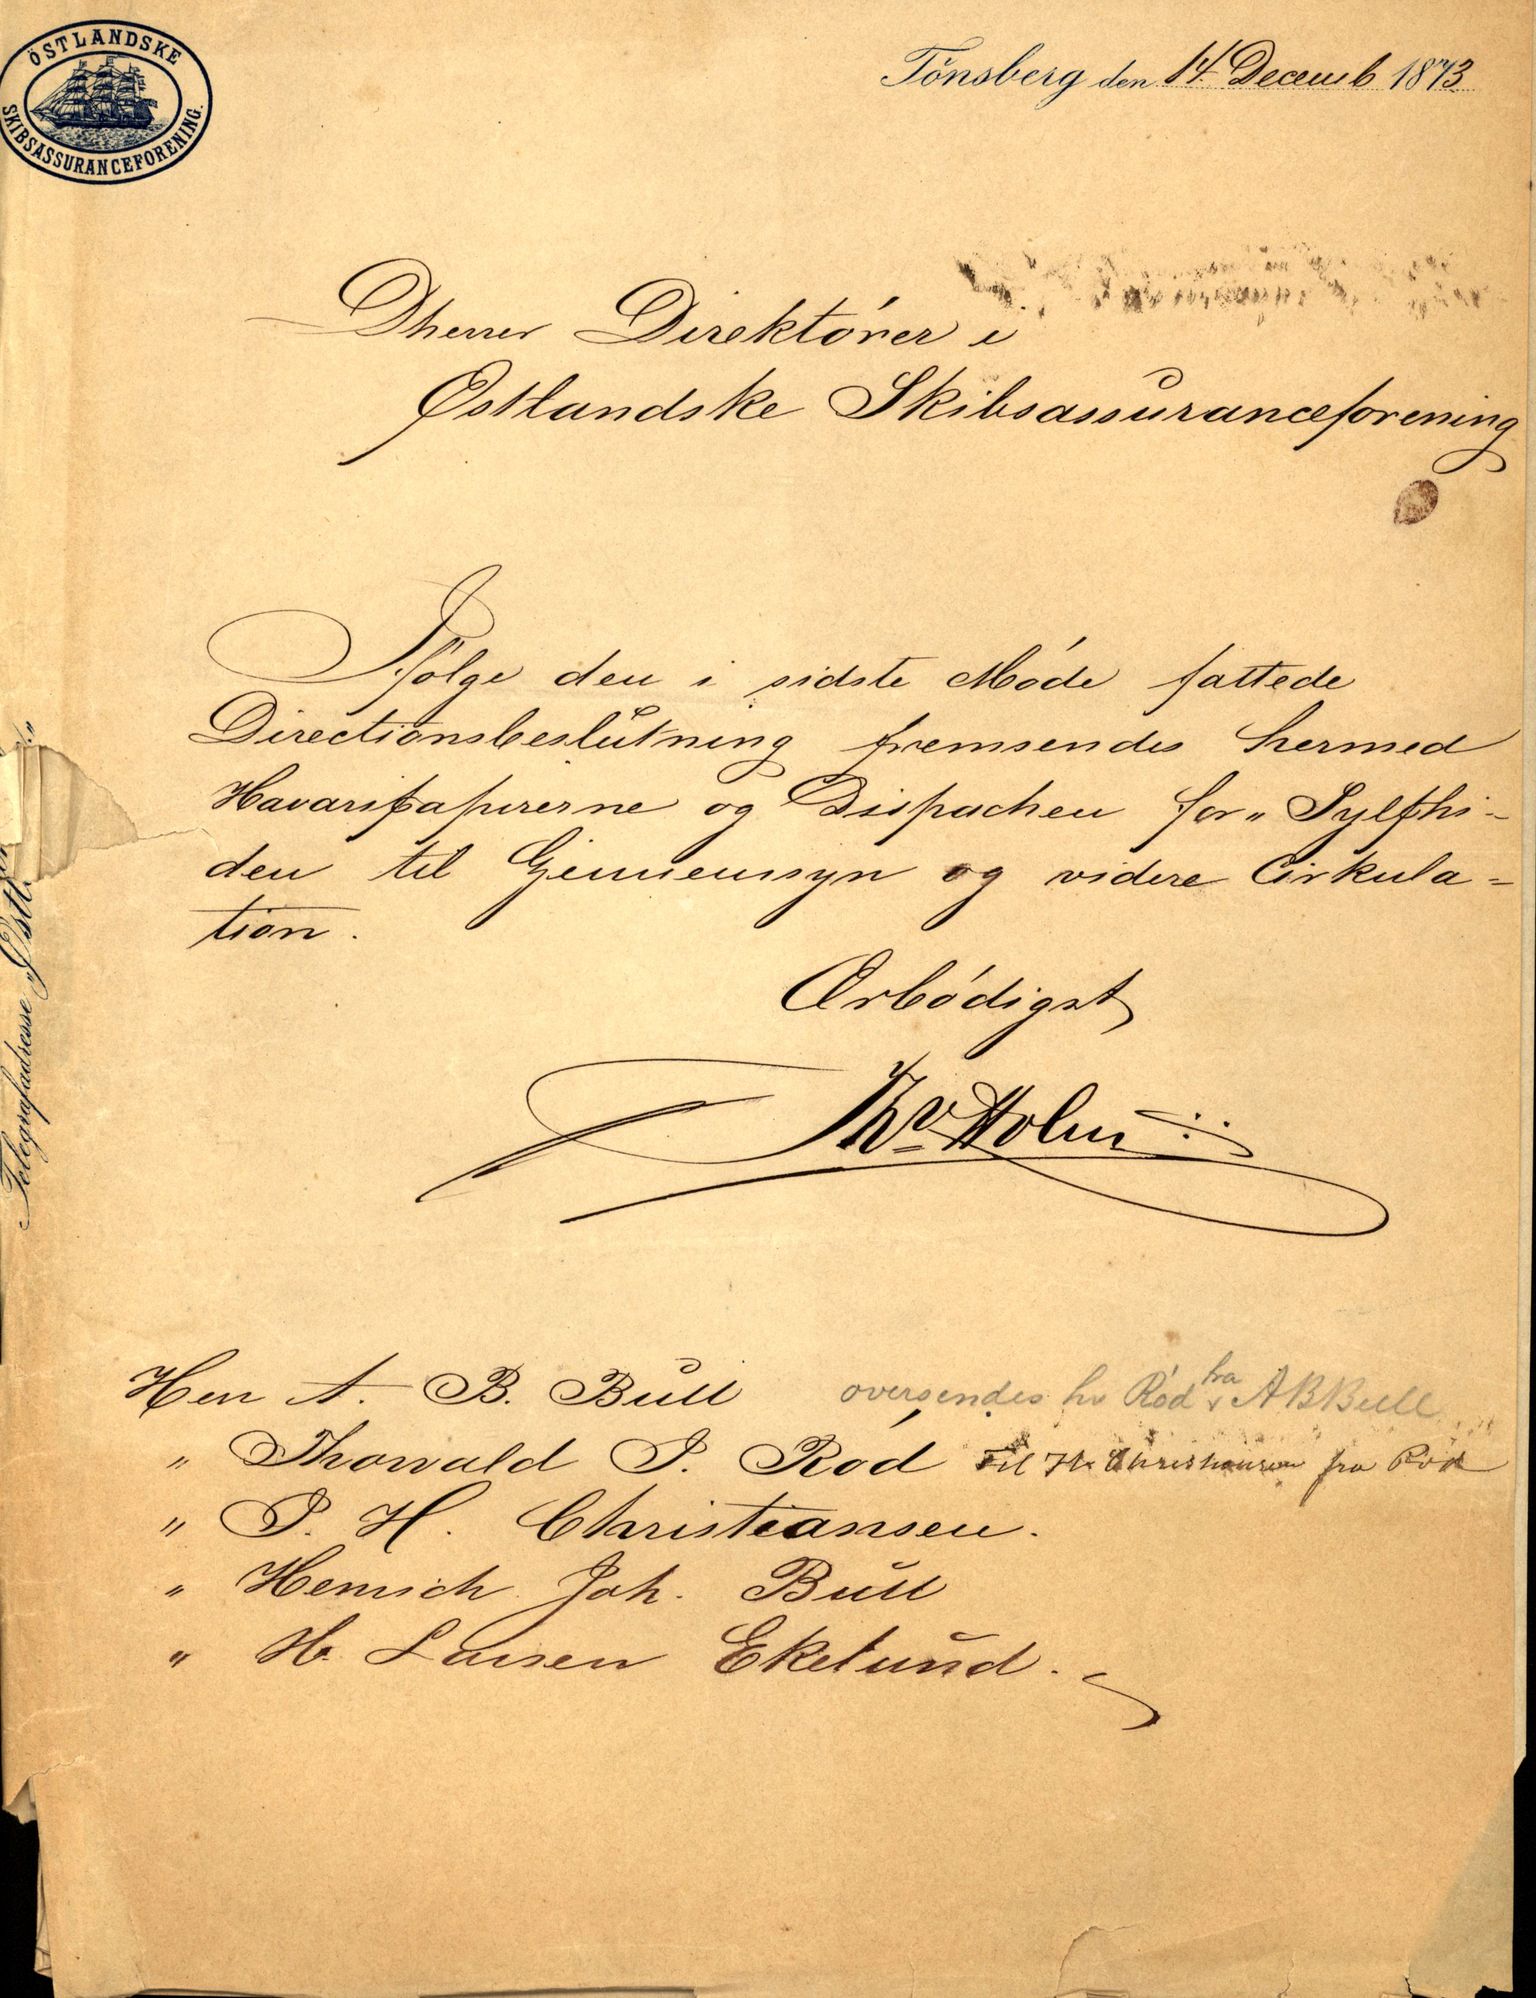 ÖSTLANDSKE
SKIBSASSURANCEFORENING.
Tönsberg den 14 Decemb 1873
Dherrer Direktórer i
Østlandske Skibsassuranceforening
Ifölge den i sidste Móde fattede
Directionsbeslutning fremsendes hermed
Havaripapirerne og Dispachen for „Sylphi-
den til Gjennemsyn og videre Cirkula=
tion.
Ærbódigst
Thv Holm
Herr A. B. Bull oversendes hr Ród fra A B Bull
" Thorvald S. Ród Til Hr Christiansen fra Ród
" S. H. Christiansen.
" Henrich Joh. Bull
" H. Larsen Ekelund.
Telegrafadresse „Östl